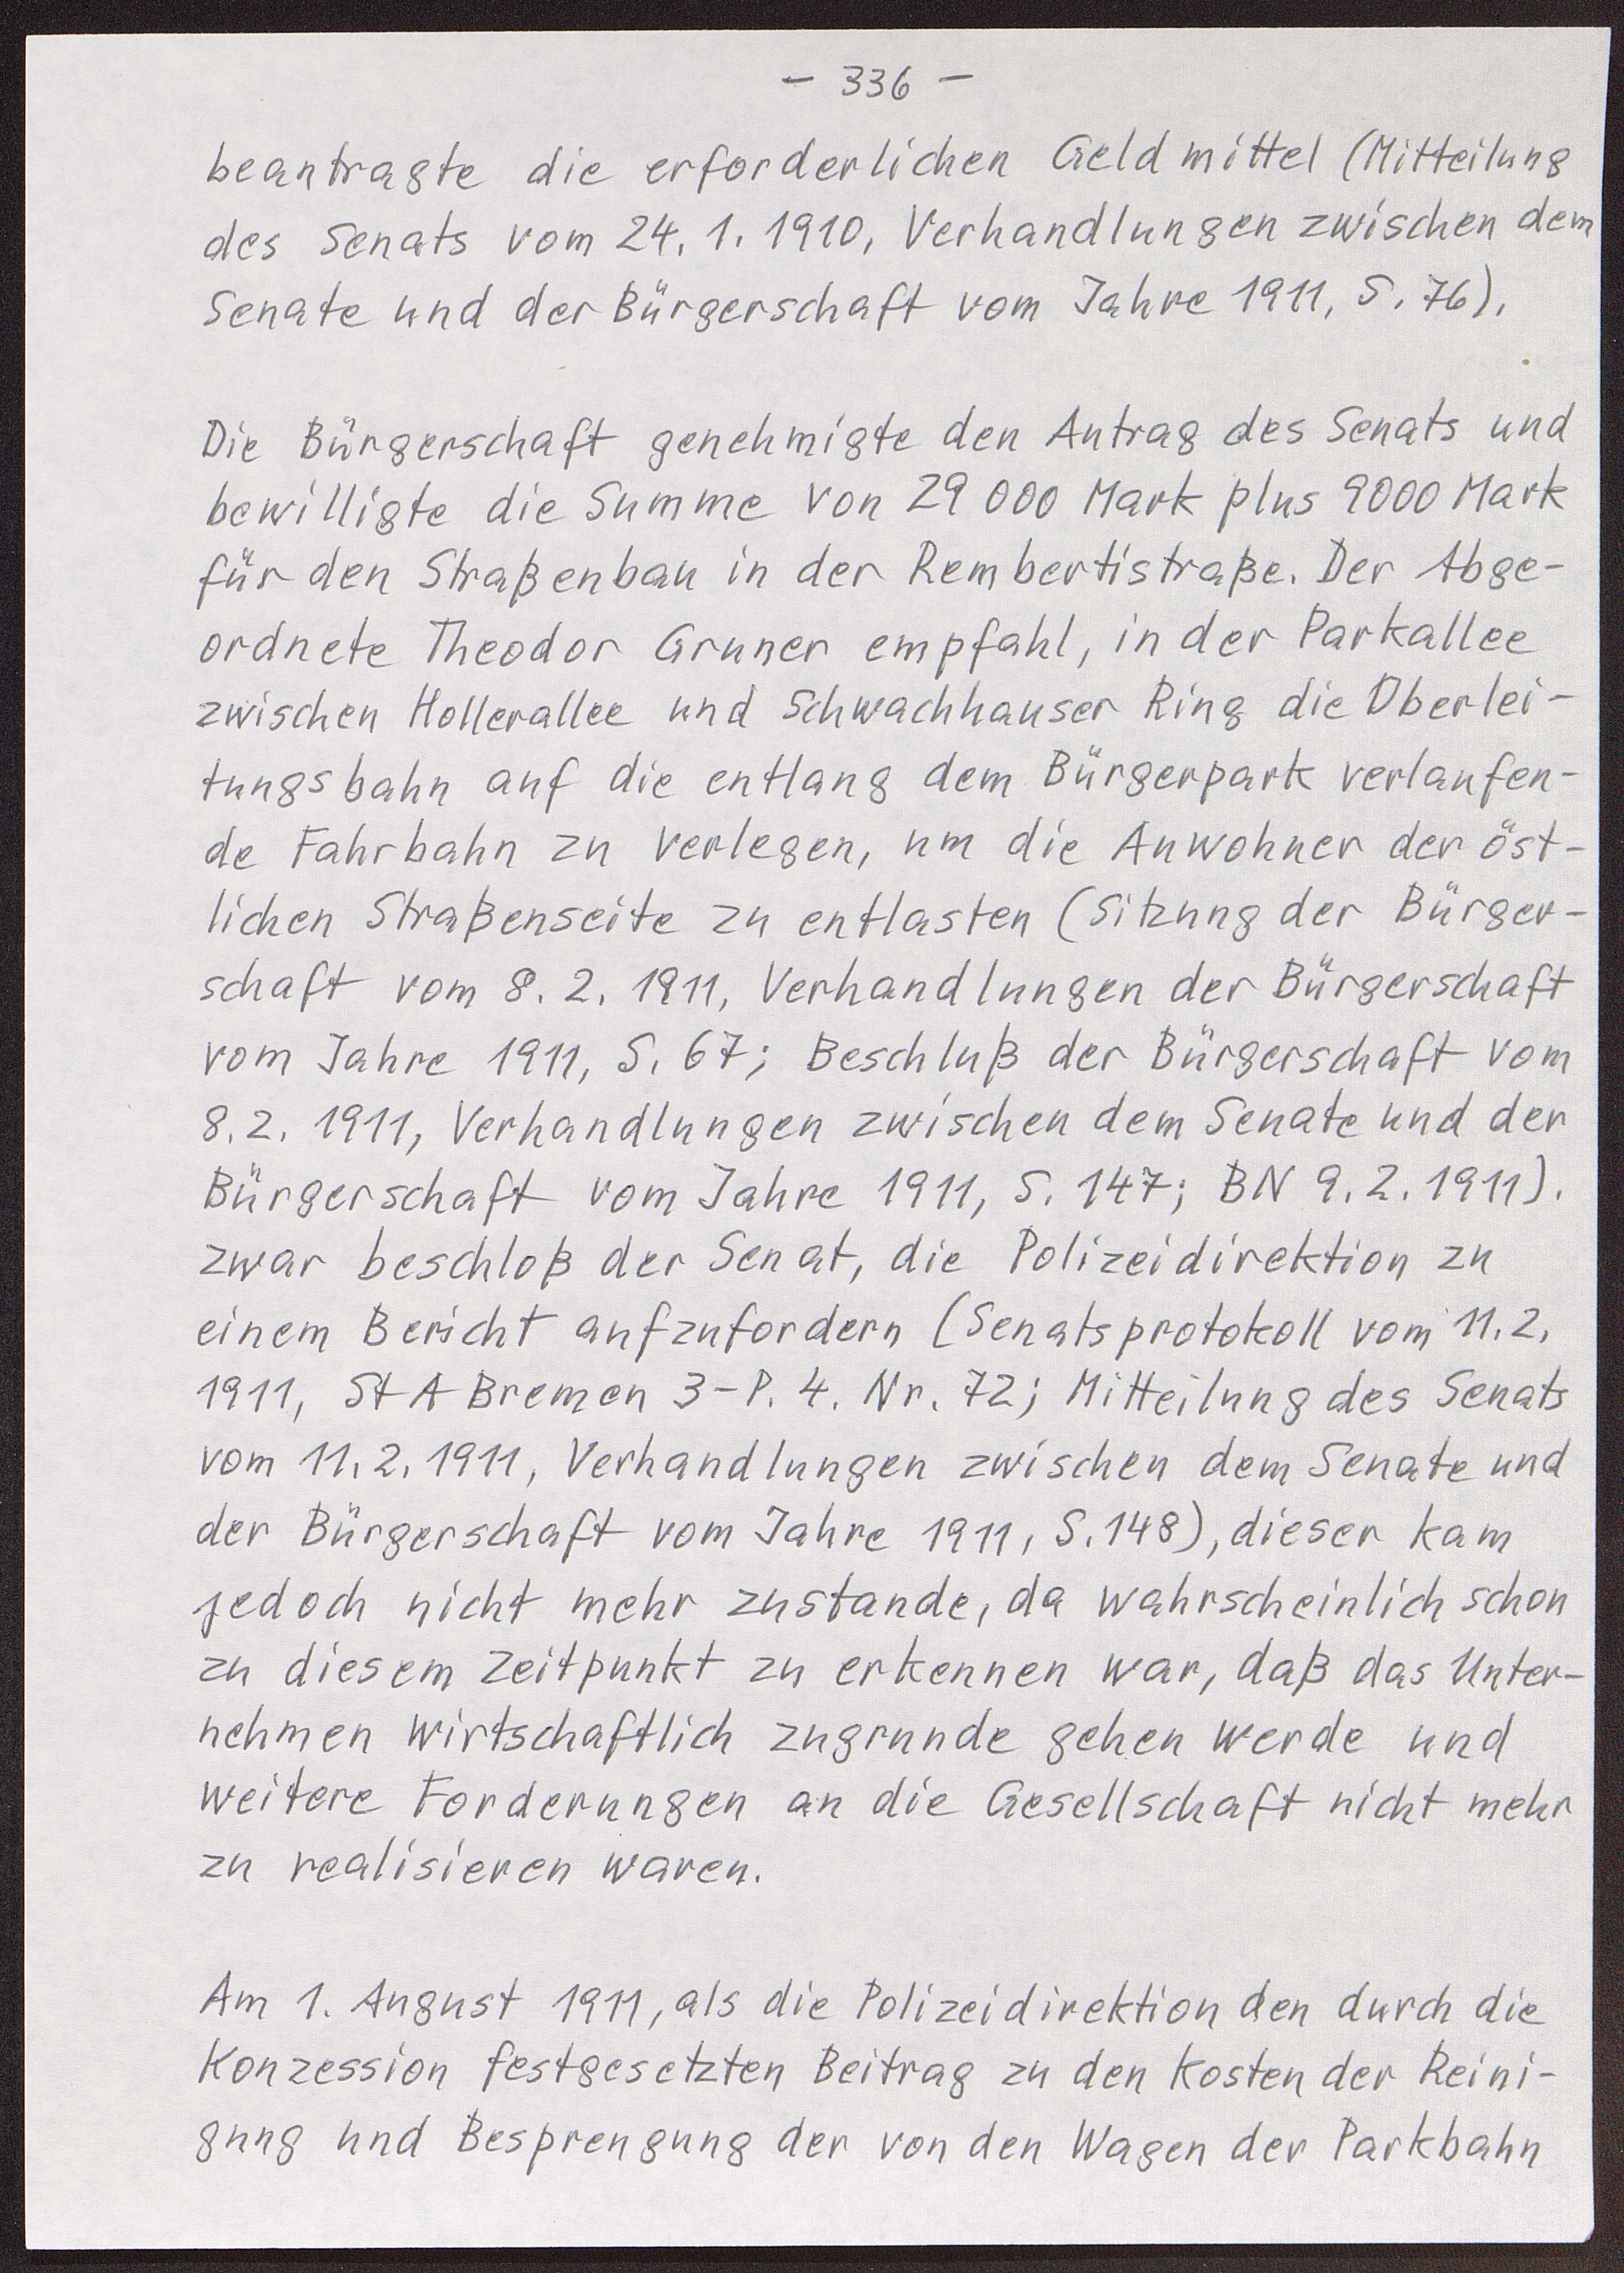 - 336 -
beantragte die erforderlichen Geldmittel (Mitteilung
des Senats vom 24. 1. 1910, Verhandlungen zwischen dem
Senate und der Bürgerschaft vom Jahre 1911, S. 76).
Die Bürgerschaft genehmigte den Antrag des Senats und
bewilligte die Summe von 29 000 Mark plus 9000 Mark
für den Straßenbau in der Rembertistraße. Der Abge-
ordnete Theodor Gruner empfahl, in der Parkallee
zwischen Hollerallee und Schwachhauser Ring die Oberlei-
tungsbahn auf die entlang dem Bürgerpark verlaufen-
de Fahrbahn zu verlegen, um die Anwohner der öst-
lichen Straßenseite zu entlasten (Sitzung der Bürger-
schaft vom 8. 2. 1911, Verhandlungen der Bürgerschaft
vom Jahre 1911, S. 67; Beschluß der Bürgerschaft vom
8. 2. 1911, Verhandlungen zwischen dem Senate und der
Bürgerschaft vom Jahre 1911, S. 147; BN 9. 2. 1911).
Zwar beschloß der Senat, die Polizeidirektion zu
einem Bericht aufzufordern (Senatsprotokoll vom 11. 2.
1911, StA Bremen 3-P. 4. Nr. 72; Mitteilung des Senats
vom 11. 2. 1911, Verhandlungen zwischen dem Senate und
der Bürgerschaft vom Jahre 1911, S. 148), dieser kam
jedoch nicht mehr zustande, da wahrscheinlich schon
zu diesem Zeitpunkt zu erkennen war, daß das Unter-
nehmen wirtschaftlich zugrunde gehen werde und
weitere Forderungen an die Gesellschaft nicht mehr
zu realisieren waren.
Am 1. August 1911, als die Polizeidirektion den durch die
Konzession festgesetzten Beitrag zu den Kosten der Reini-
gung und Besprengung der von den Wagen der Parkbahn